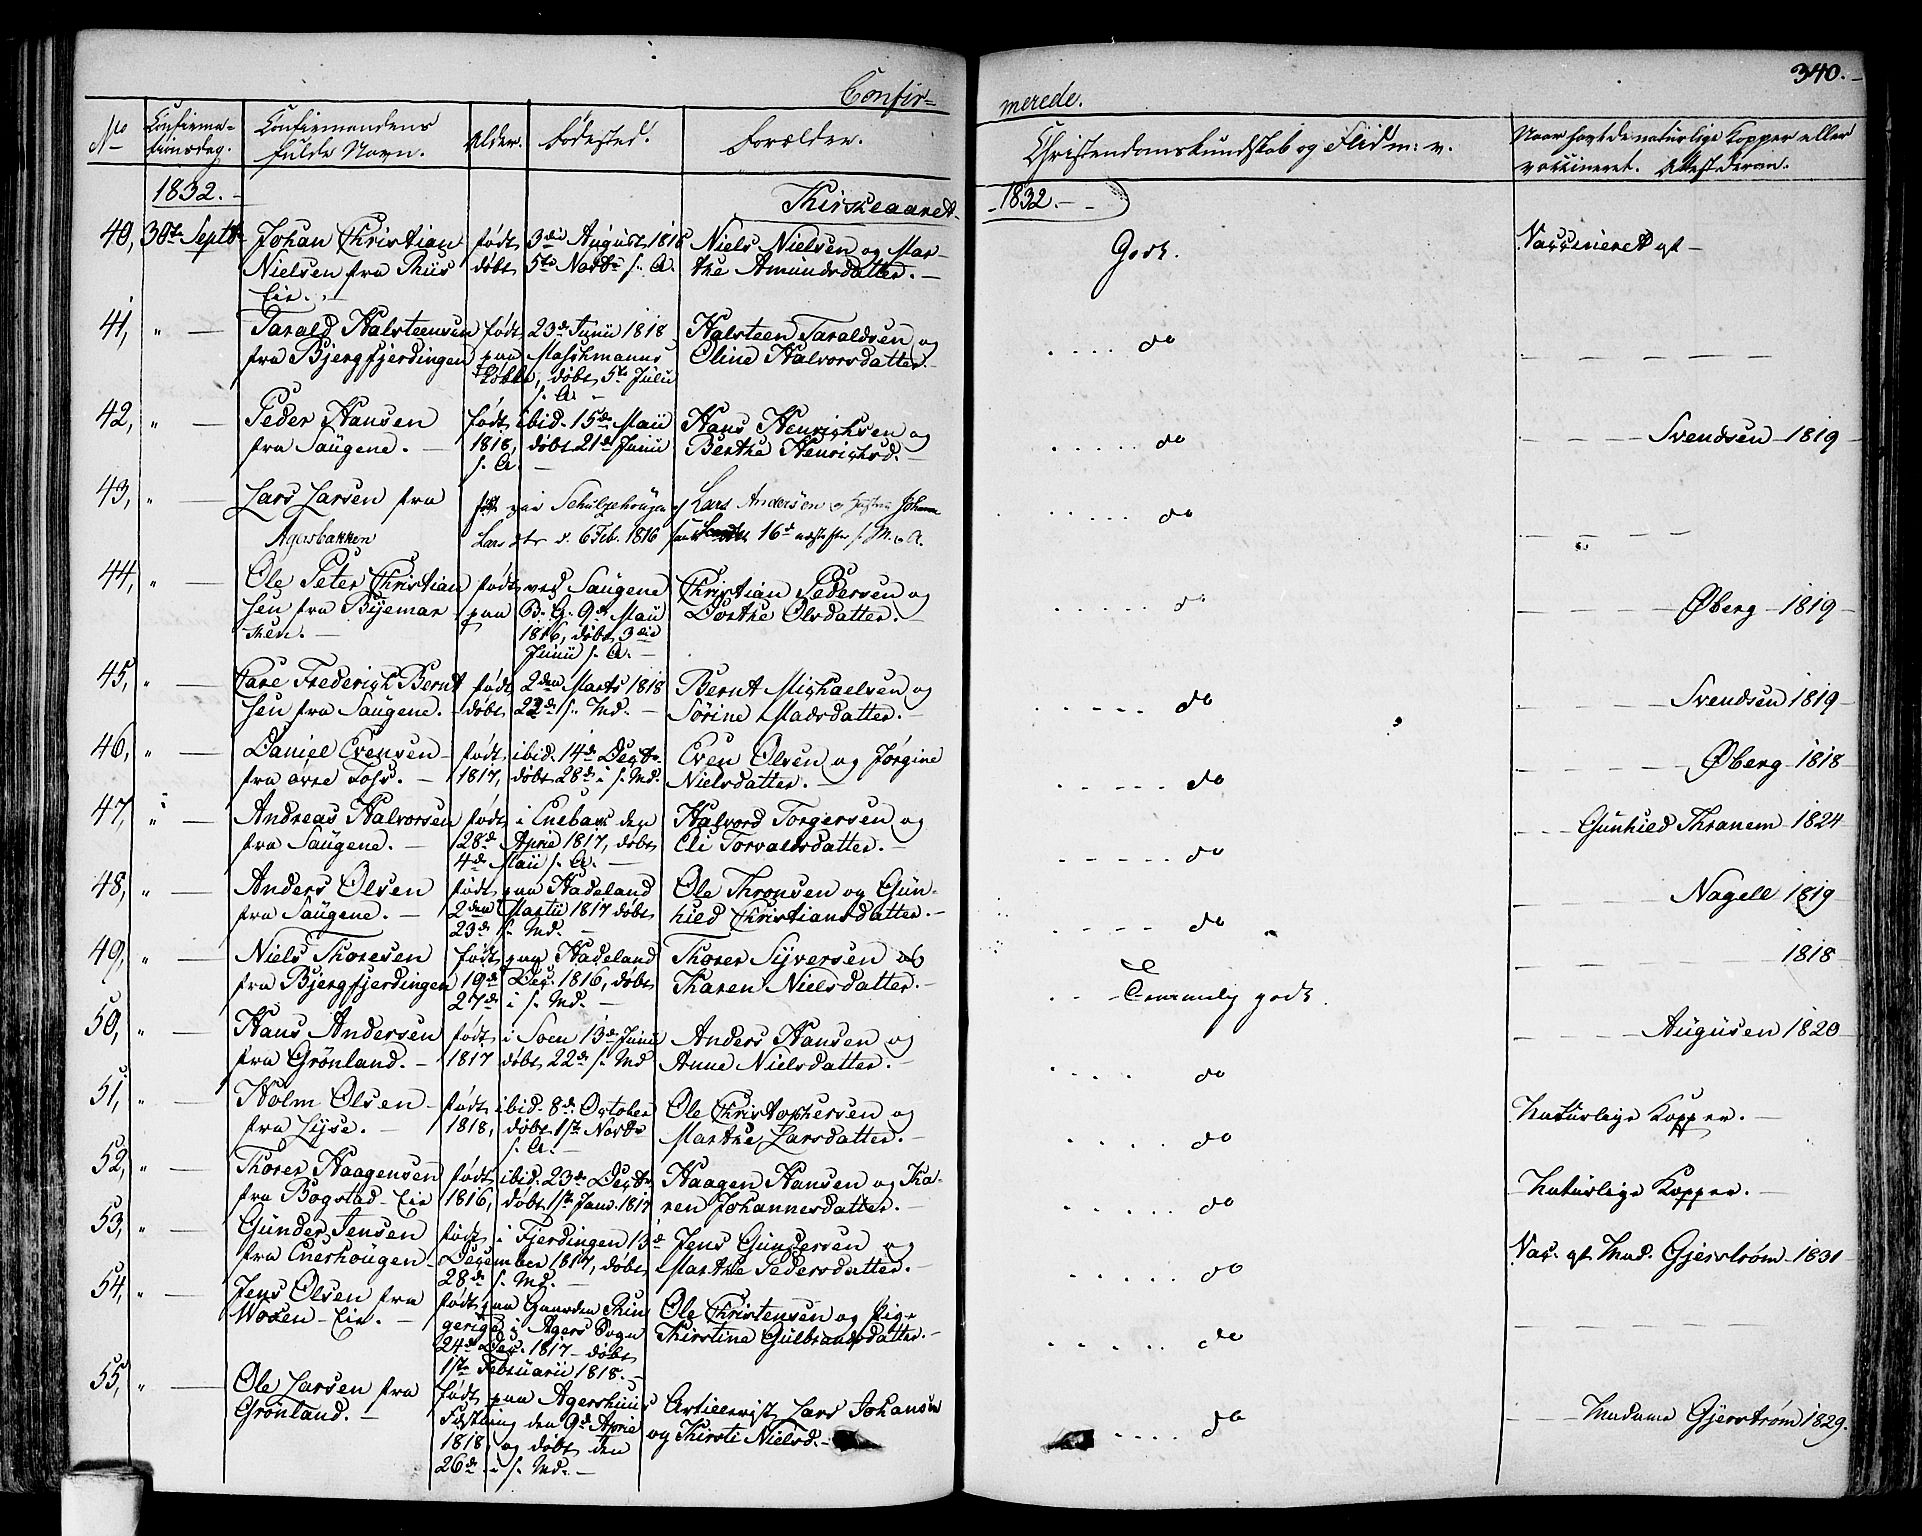 340.
Confir=
merede.
No
Confirma-
tionsdag.
Confirmandens
fulde Navn.
Alder.
Fødested.
Forældre.
Christendomskundskab og Flid m: v.
Naar havt de naturlige Kopper eller
vaccineret. Attest derom.
1832.
Kirkeaaret
1832.
40, 30te Septbr Johan Christian født 3die August 1816 Niels Nielsen og Mar-
Nielsen fra Riis døbt 5te Novbr s. A. the Amundsdatter.
Eie.
Godt.
Vaccineret af
41, " Tarald Halsteensen født 23de Junii 1818 Halsteen Taraldsen og
fra Bjergfjerdingen paa Maschmanns Oline Halvorsdatter.
Løkke, døbt 5te Julii
s. A.
do
42, " Peder Hansen født ibid. 15de Maii Hans Henrichsen og
fra Saugene. 1818, døbt 21de Junii Berthe Henrichsd.
s. A.
do
Svendsen 1819
43, " Lars Larsen fra født paa Schulzehougen af Lars Andersen og
Agersbakken 6 Feb. 1816 16de
do
44, " Ole Peter Christian født ved Saugene Christian Pedersen og
sen fra Bijemar paa B. G. 9de Maii Dorthe Olsdatter.
ken. 1816, døbt 3die
Junii s. A.
do
Øberg 1819
45, " Carl Frederich Bernt født 2den Marts 1818 Bernt Michaelsen og
sen fra Saugene. døbt 22de s. Md. Sørine Madsdatter.
do
Svendsen 1819
46, " Daniel Evensen født ibid. 14de Decbr Even Olsen og Jørgine
fra øvre Foss. 1817, døbt 28de i s. Md. Nielsdatter.
do
Øberg 1818
47, " Andreas Halvorsen født i Enebak den Halvord Torgersen og
fra Saugene. 28de April 1817, døbt Eli Torvaldsdatter.
4de Maii s. A.
do
Gunhild Thranem 1824
48, " Anders Olsen født paa Hadeland Ole Thronsen og Gun-
fra Saugene. 2den Martii 1817 døbt hild Christiansdatter.
23de s. Md.
do
Nagell 1819
49, " Niels Thoresen født paa Hadeland Thorer Sijversen og
fra Bjergfjerdingen 19de Dec. 1816, døbt Karen Nielsdatter.
27de i s. Md.
Temmelig godt.
1818
50, " Hans Andersen født i Soen 13de Junii Anders Hansen og
fra Grønland. 1817 døbt 22de s. Md Anne Nielsdatter.
do
Augusen 1820
51, " Holm Olsen født ibid. 8de October Ole Christophersen og
fra Lijse. 1818, døbt 1ste Novbr Marthe Larsdatter.
s. A.
do
Naturlige Kopper.
52, " Thorer Haagensen født ibid. 23de Decbr Haagen Hansen og Ka-
fra Bogstad Eie 1816, døbt 1ste Janr. 1817 ren Johannesdatter.
do
Naturlige Kopper.
53, " Gunder Jensen født i Fjerdingen 13de Jens Gundersen og
fra Enerhougen December 1817, døbt Marthe Pedersdatter.
28de s. Md.
do
Vac. af Mad. Gjerstrøm 1831
54, " Jens Olsen fra født paa Gaarden Ring Ole Christensen og Pige
Woxen Eie. gerige i Agers Sogn Kirstine Gulbrandsdatter.
24de Dec. 1817 døbt
1ste Februarii 1818.
do
55, " Ole Larsen fra født paa Agershuus Artillerist Lars Johansen
Grønland. Fæstning den 9de April og Kirsti Nielsd.
1818, og døbt den
26de i s. Md.
do
Madame Gjerstrøm 1829.